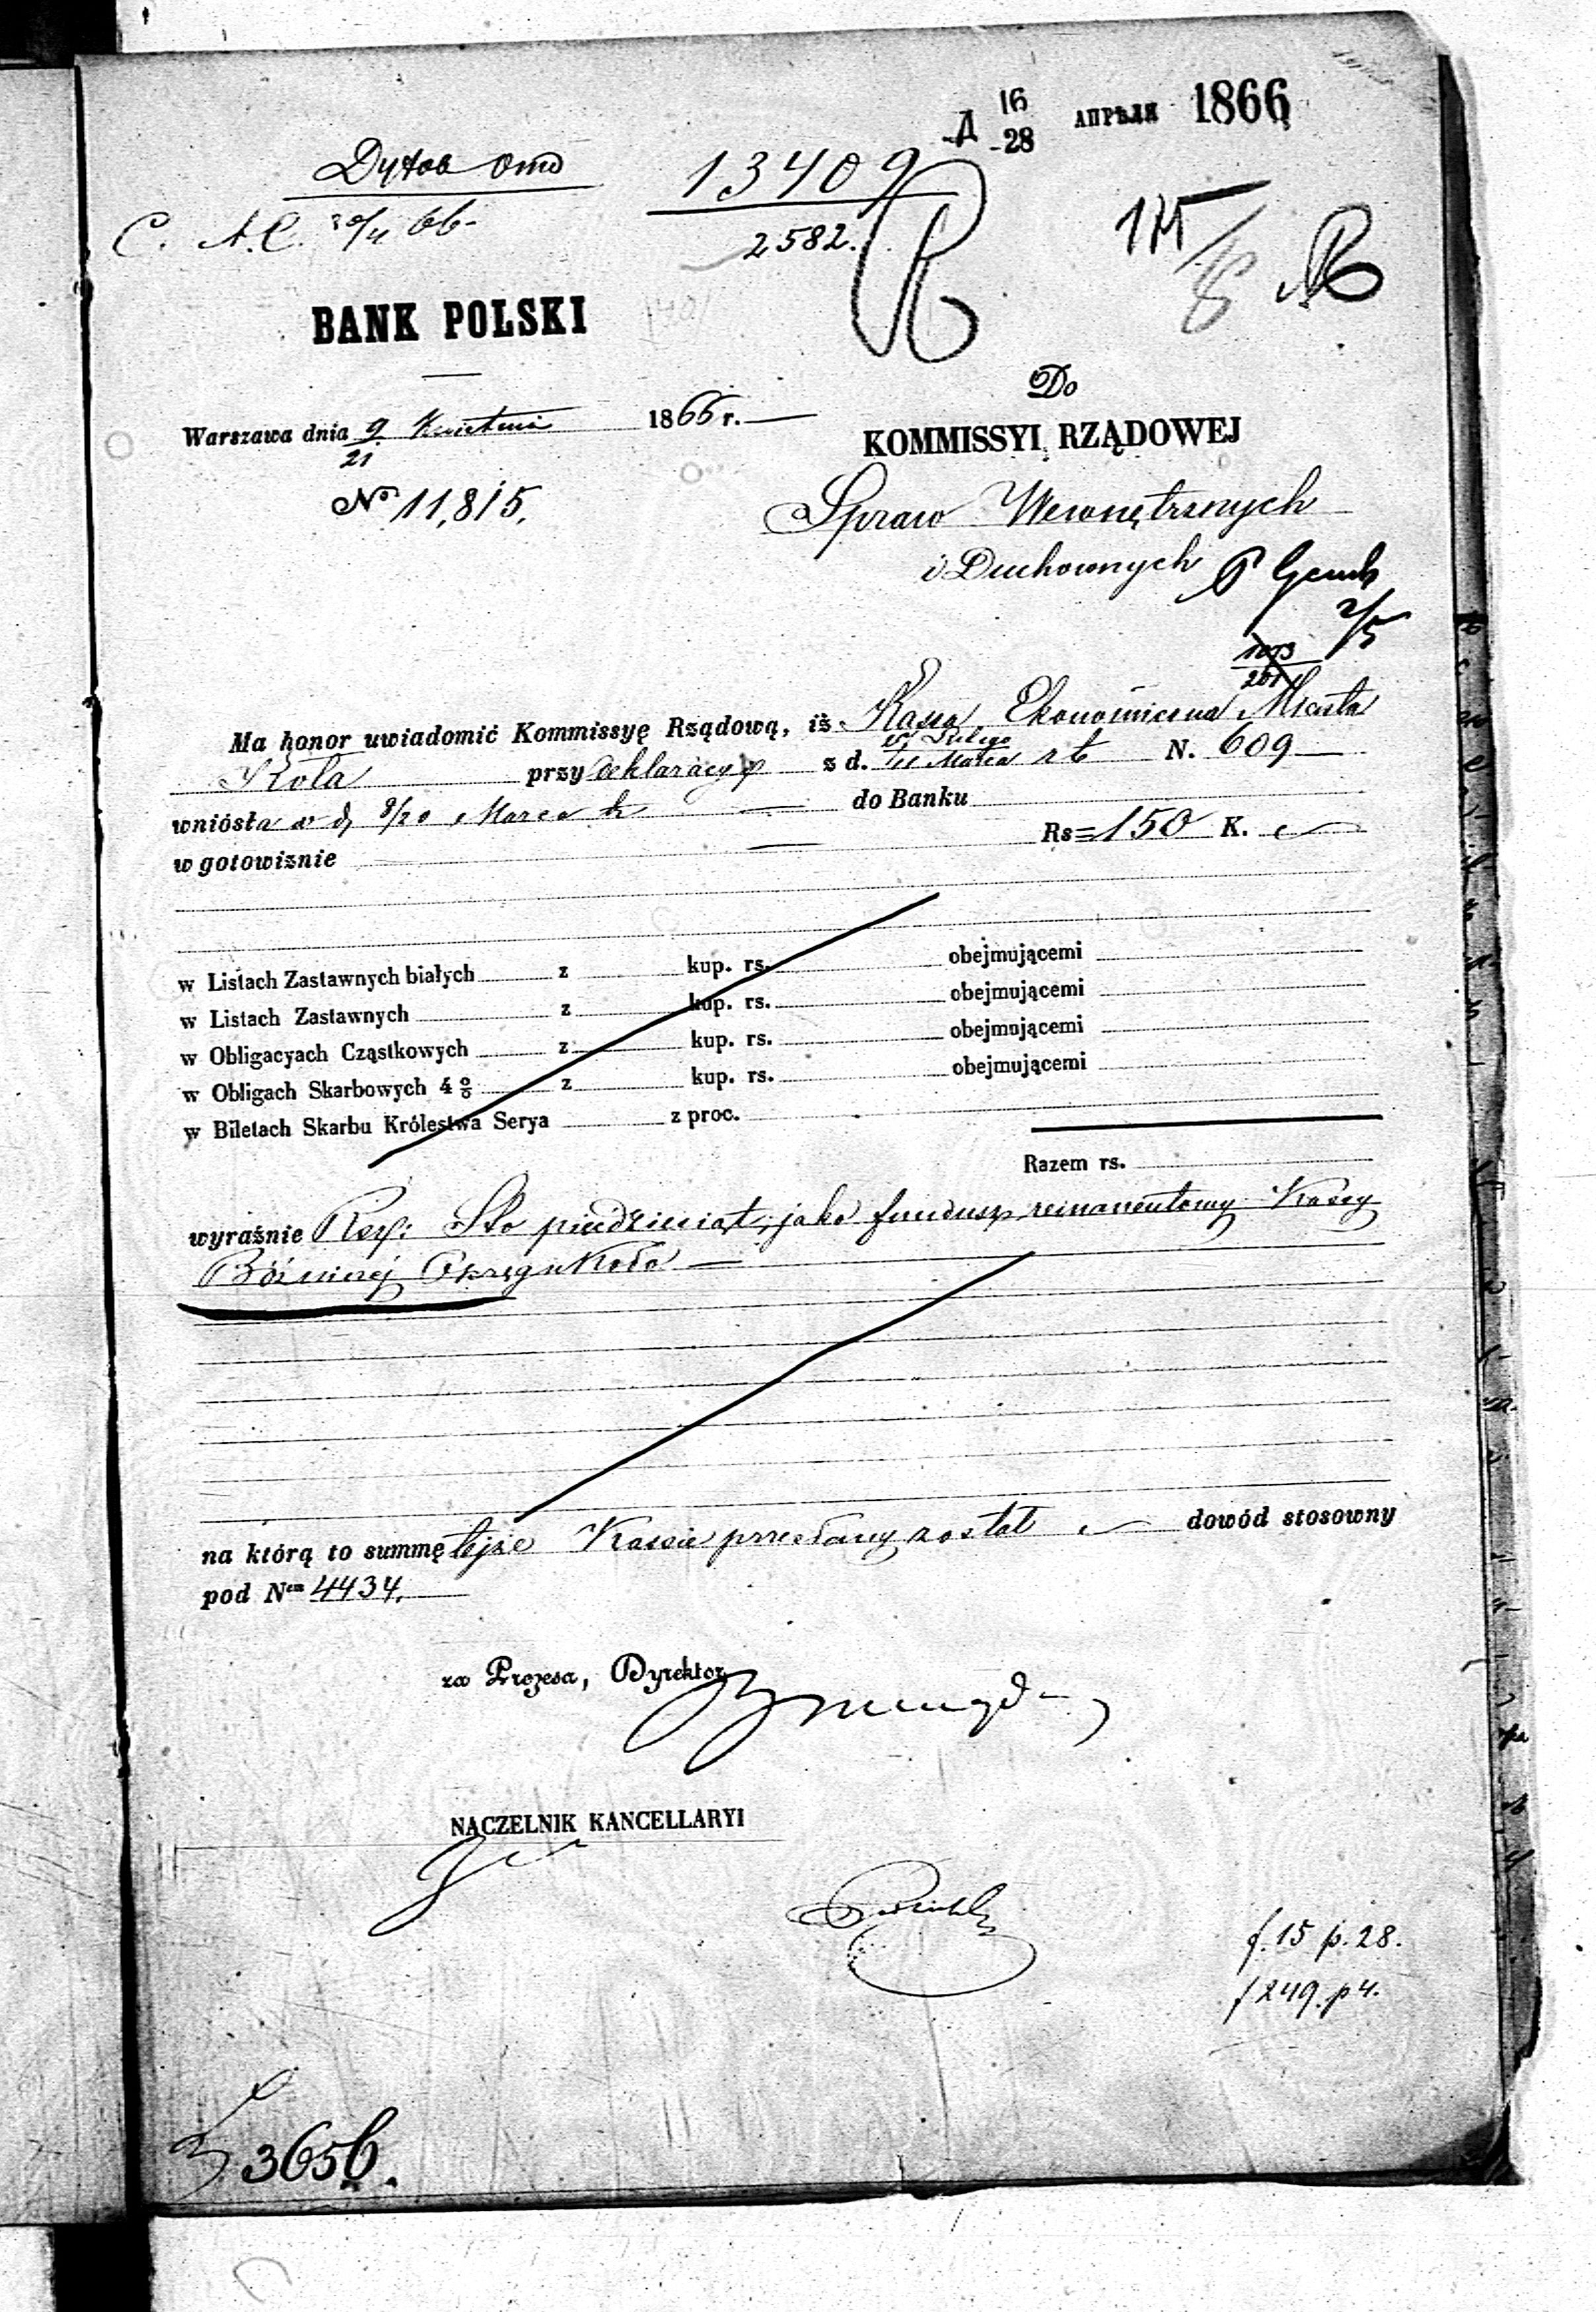 Д 16/28 АПРѢЛЯ 1866
13409
2582.
C. A.C. 20/4 66
BANK POLSKI
Do
Warszawa dnia 9/21 Kwietnia 1866 r.
KOMMISSYI RZĄDOWEJ
No 11,815.
Spraw Wewnętrznych
i Duchownych
2/5
Ma honor uwiadomić Kommissyę Rządową, iż Kassa Ekonomiczna Miasta
Koła przy deklaracyi z d. Marca r b N. 609
wniosła w d. 8/20 Marca do Banku
w gotowiznie Rs = 150 K.
w Listach Zastawnych białych z kup. rs. obejmującemi
w Listach Zastawnych z kup. rs. obejmującemi
w Obligacyach Cząstkowych z kup. rs. obejmującemi
w Obligach Skarbowych 4 % z kup. rs. obejmującemi
w Biletach Skarbu Królestwa Serya z proc.
Razem rs.
wyraźnie Rsr: Sto piędziesiąt, jako fundusz remanentowy Kassy
Bóżniczej Okręgu Koło
na którą to summę tejże Kassie przesłany został dowód stosowny
pod Nem 4434.
za Prezesa, Dyrektor
NACZELNIK KANCELLARYI
f. 15 p. 28.
f 249. p 4.
3656.